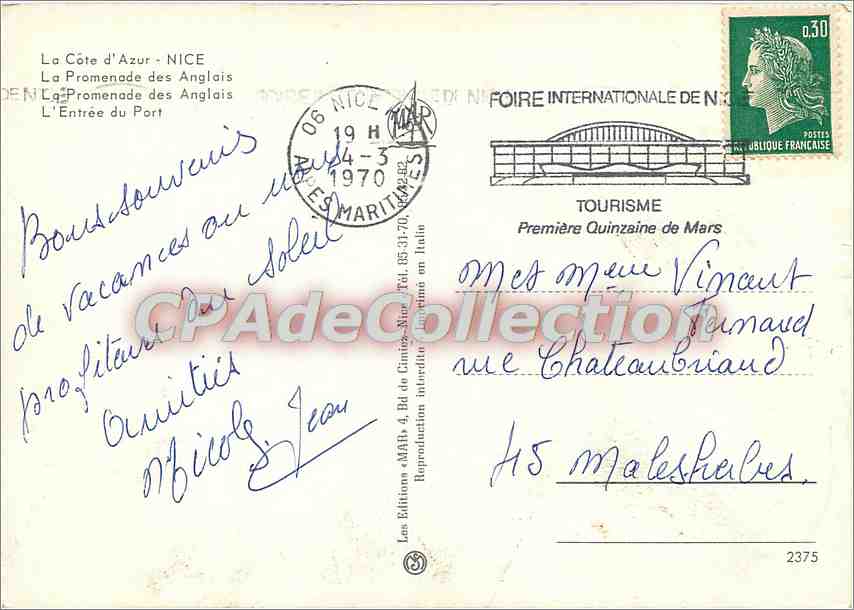 La Côte d'Azur - NICE
La Promenade des Anglais
La Promenade des Anglais
L'Entrée du Port
Bons souvenirs
de vacances ou nous
profitons du soleil
Amitiés
Nicole, Jean
06 NICE
19 H
4-3
1970
ALPES MARITIMES
MAR
FOIRE INTERNATIONALE DE NICE
TOURISME
Première Quinzaine de Mars
0,30
POSTES
REPUBLIQUE FRANÇAISE
Les Editions «MAR» 4, Bd de Cimiez, Nice - Tél. 85-31-70,
Reproduction interdite - Imprimé en Italie
Mr et Mme Vincent
Fernand
rue Chateaubriand
45 Malesherbes.
2375
CPAdeCollection